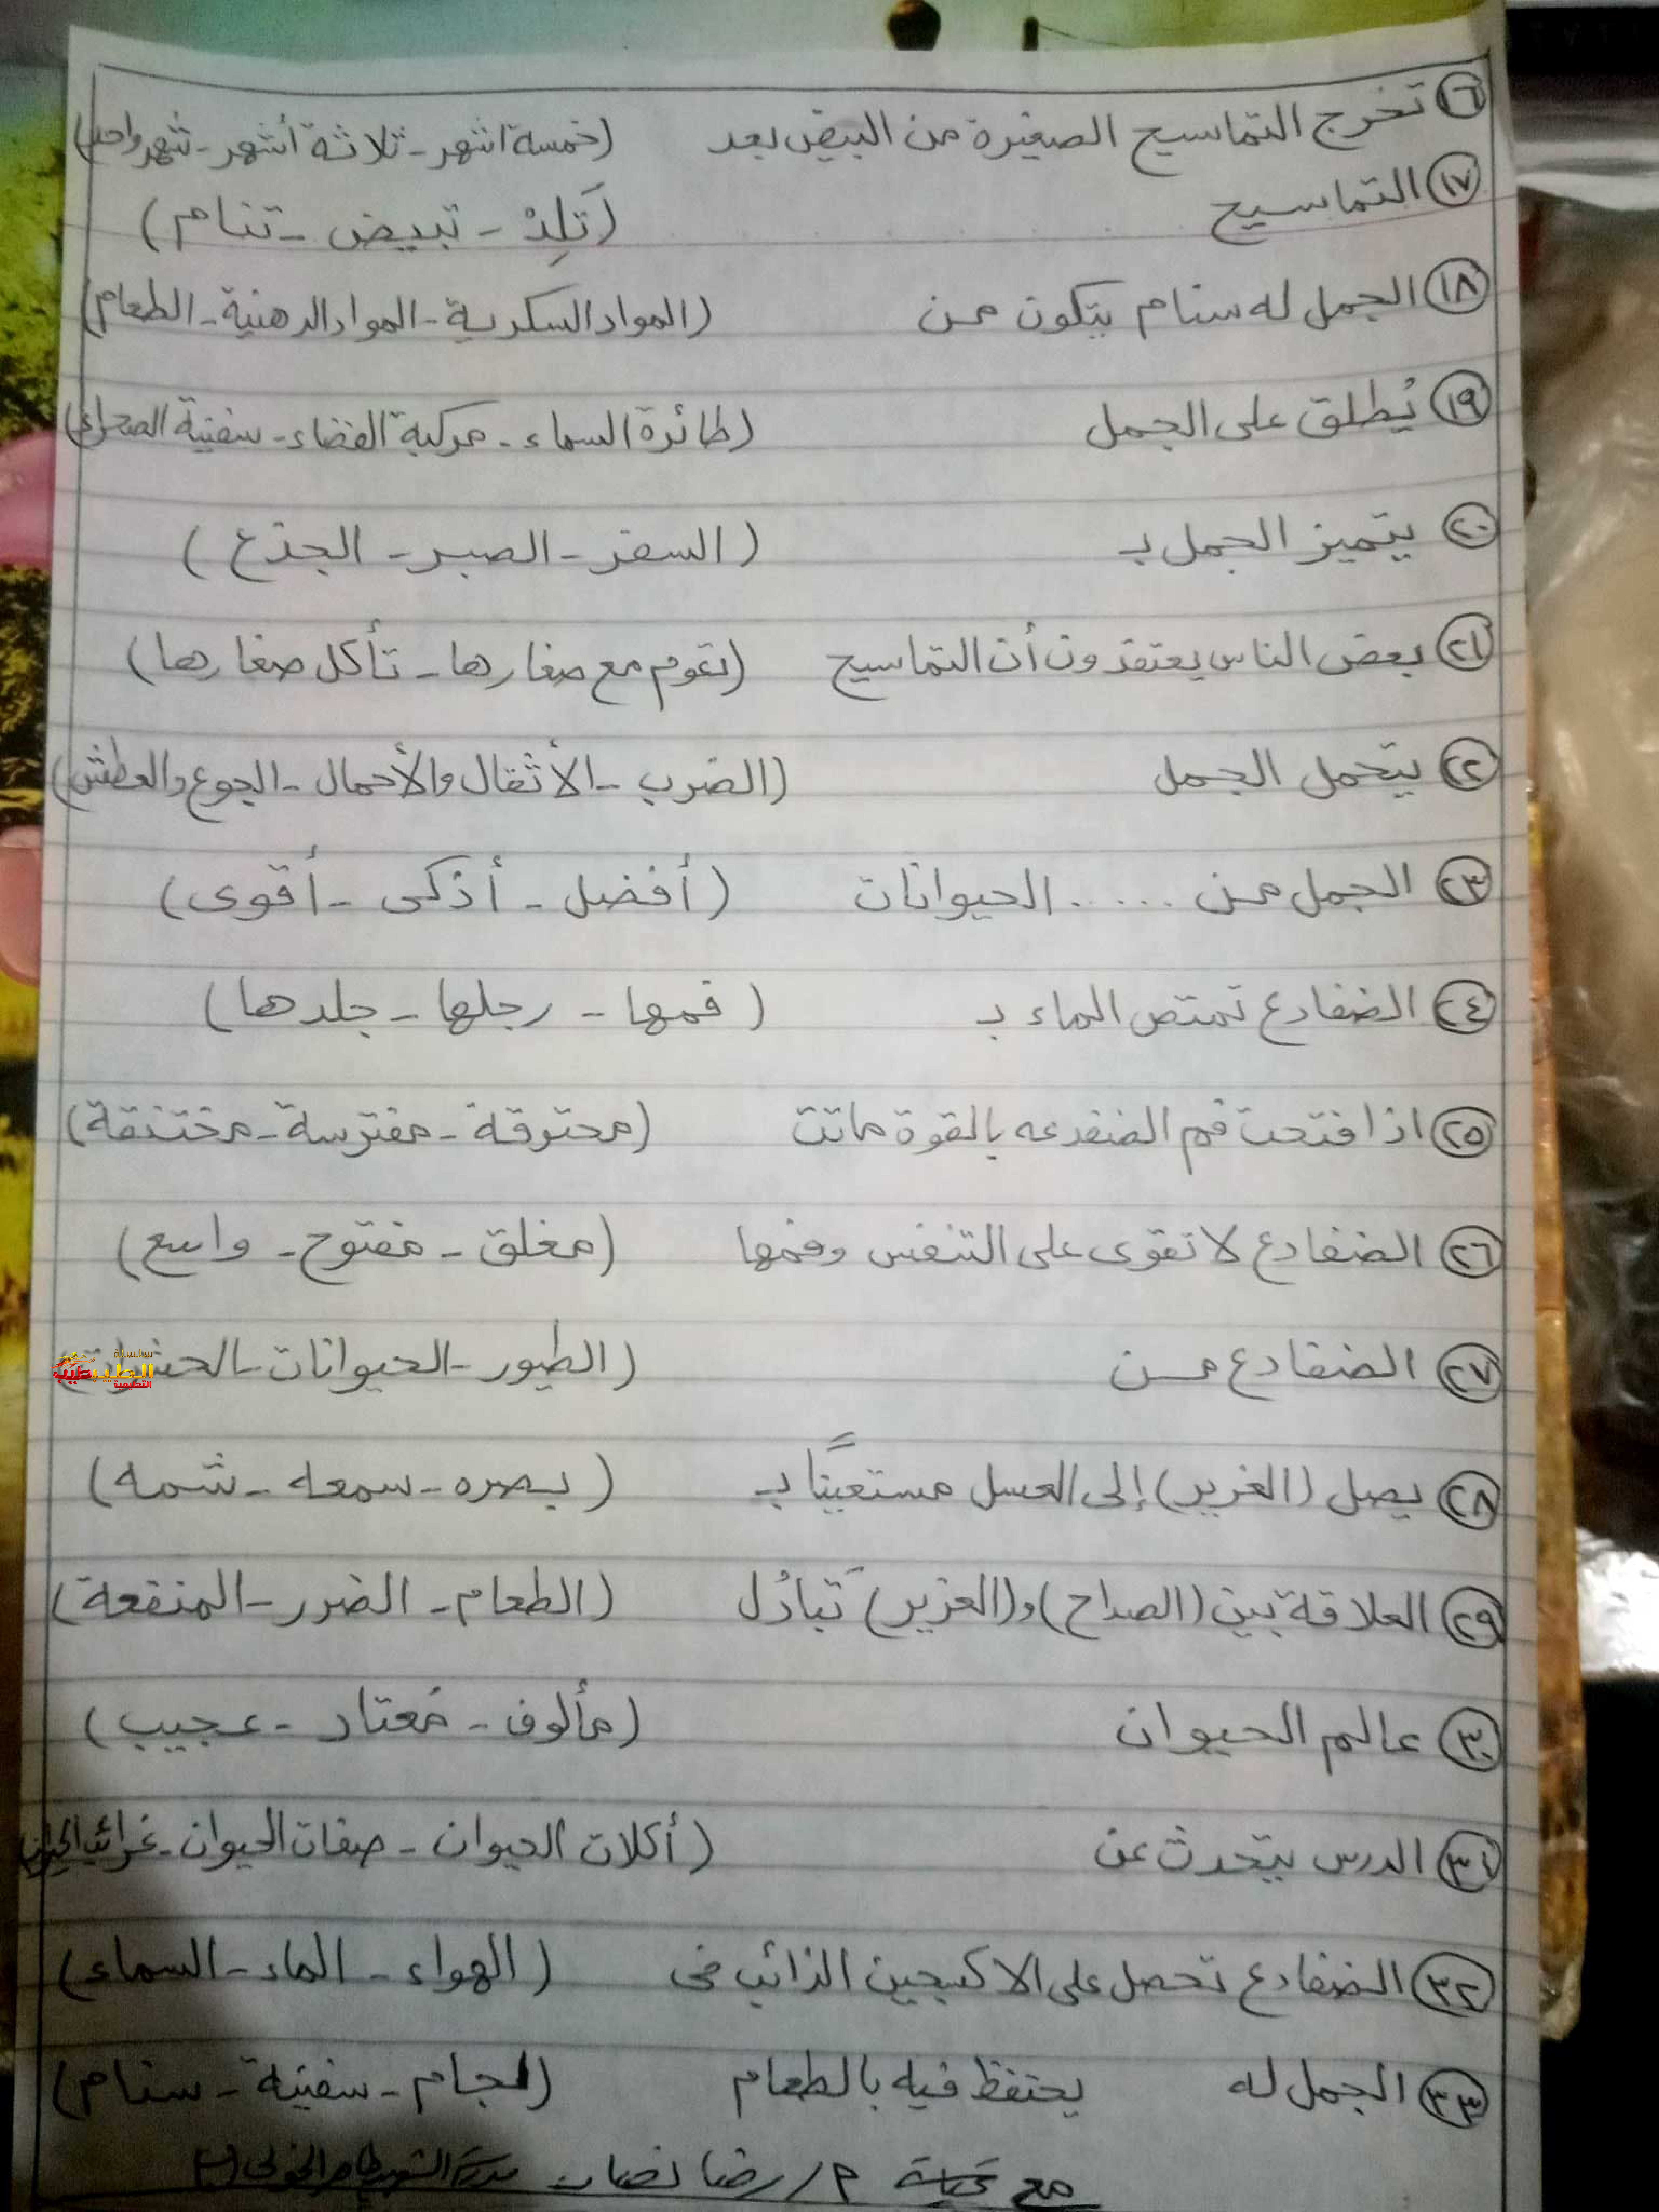 ١٦ تخرج التماسيح الصغيرة من البيض بعد (خمسة اشهر - ثلاثة أشهر - شهر واحد)
١٧ التماسيح (تَلِدْ - تبيض - تنام)
١٨ الجمل له سنام يتكون من (المواد السكرية - المواد الدهنية - الطعام)
١٩ يُطلق على الجمل (طائرة السماء - مركبة الفضاء - سفينة الصحراء)
٢٠ يتميز الجمل بـ (السفر - الصبر - الجذع)
٢١ بعض الناس يعتقدون أن التماسيح (تقوم مع صغارها - تأكل صغارها)
٢٢ يتحمل الجمل (الضرب - الأثقال والأحمال - الجوع والعطش)
٢٣ الجمل من ..... الحيوانات (أفضل - أذكى - أقوى)
٢٤ الضفادع تمتص الماء بـ (فمها - رجلها - جلدها)
٢٥ اذا فتحت فم الضفدعه بالقوة ماتت (محترقة - مفترسة - مختنقة)
٢٦ الضفادع لا تقوى على التنفس وفمها (مغلق - مفتوح - واسع)
٢٧ الضفادع من (الطيور - الحيوانات - الحشرات)
سلسلة
الطيب
التعليمية
٢٨ يصل (الغرير) إلى العسل مستعينًا بـ (بصره - سمعه - شمه)
٢٩ العلاقة بين (الصداح) و(الغرير) تَبادُل (الطعام - الضرر - المنفعة)
٣٠ عالم الحيوان (مألوف - مُعتاد - عجيب)
٣١ الدرس يتحدث عن (أكلات الحيوان - صفات الحيوان - غرائب الحيوان)
٣٢ الضفادع تحصل على الاكسجين الذائب فى (الهواء - الماء - السماء)
٣٣ الجمل له يحتفظ فيه بالطعام (لجام - سفينة - سنام)
مع تحية م/رضا نصار مدرسة الشهيد